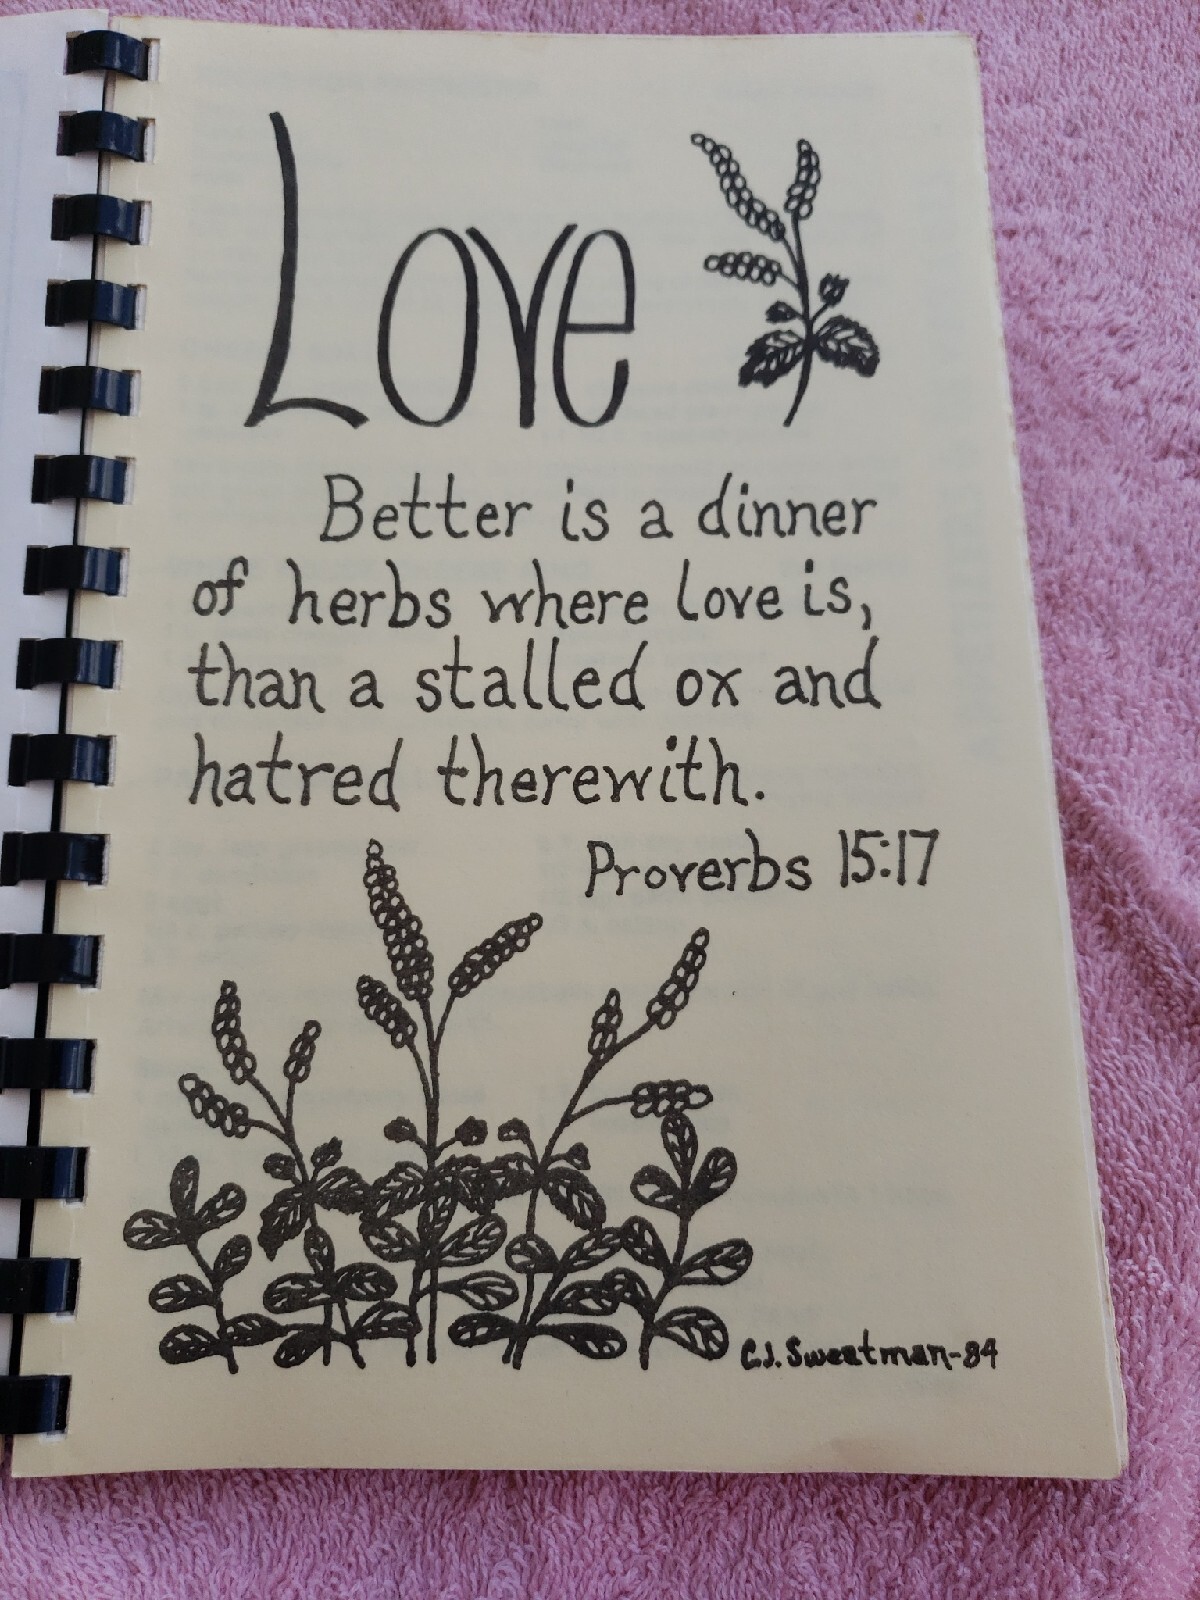 Love
Better is a dinner
of herbs where love is,
than a stalled ox and
hatred therewith.
Proverbs 15:17
C.J. Sweatman-84